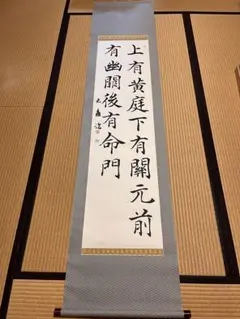 上有黄庭下有關元前
有幽闕後有命門